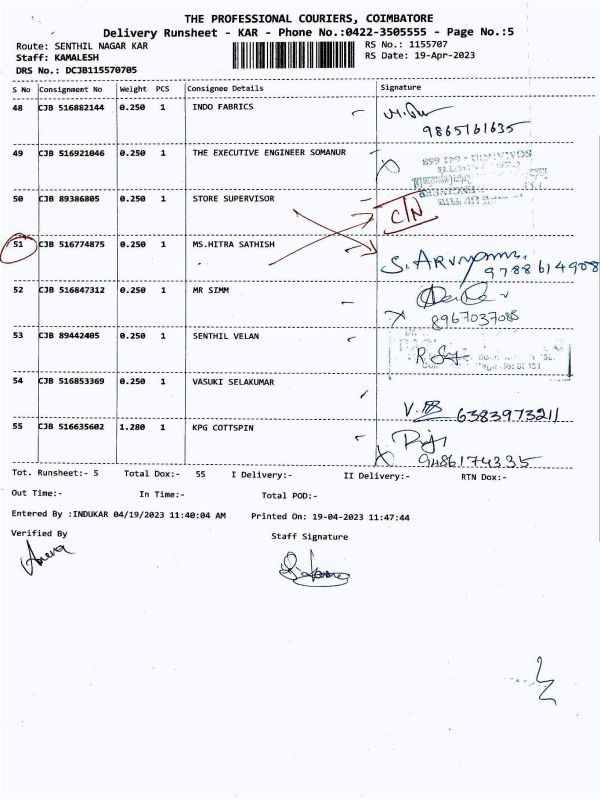 THE PROFESSIONAL COURIERS, COIMBATORE
Delivery Runsheet - KAR - Phone No.:0422-3505555 - Page No.:5
Route: SENTHIL NAGAR KAR RS No.: 1155707
Staff: KAMALESH RS Date: 19-Apr-2023
DRS No.: DCJB115570705
S No Consignment No Weight PCS Consignee Details Signature
48 CJB 516882144 0.250 1 INDO FABRICS
9865161635
49 CJB 516921046 0.250 1 THE EXECUTIVE ENGINEER SOMANUR
50 CJB 89386805 0.250 1 STORE SUPERVISOR C/N
51 CJB 516774875 0.250 1 MS.HITRA SATHISH
9788614908
52 CJB 516847312 0.250 1 MR SIMM
8967037088
53 CJB 89442405 0.250 1 SENTHIL VELAN
54 CJB 516853369 0.250 1 VASUKI SELAKUMAR
6383973211
55 CJB 516635602 1.280 1 KPG COTTSPIN
9486174335
Tot. Runsheet:- 5 Total Dox:- 55 I Delivery:- II Delivery:- RTN Dox:-
Out Time:- In Time:- Total POD:-
Entered By :INDUKAR 04/19/2023 11:40:04 AM Printed On: 19-04-2023 11:47:44
Verified By Staff Signature